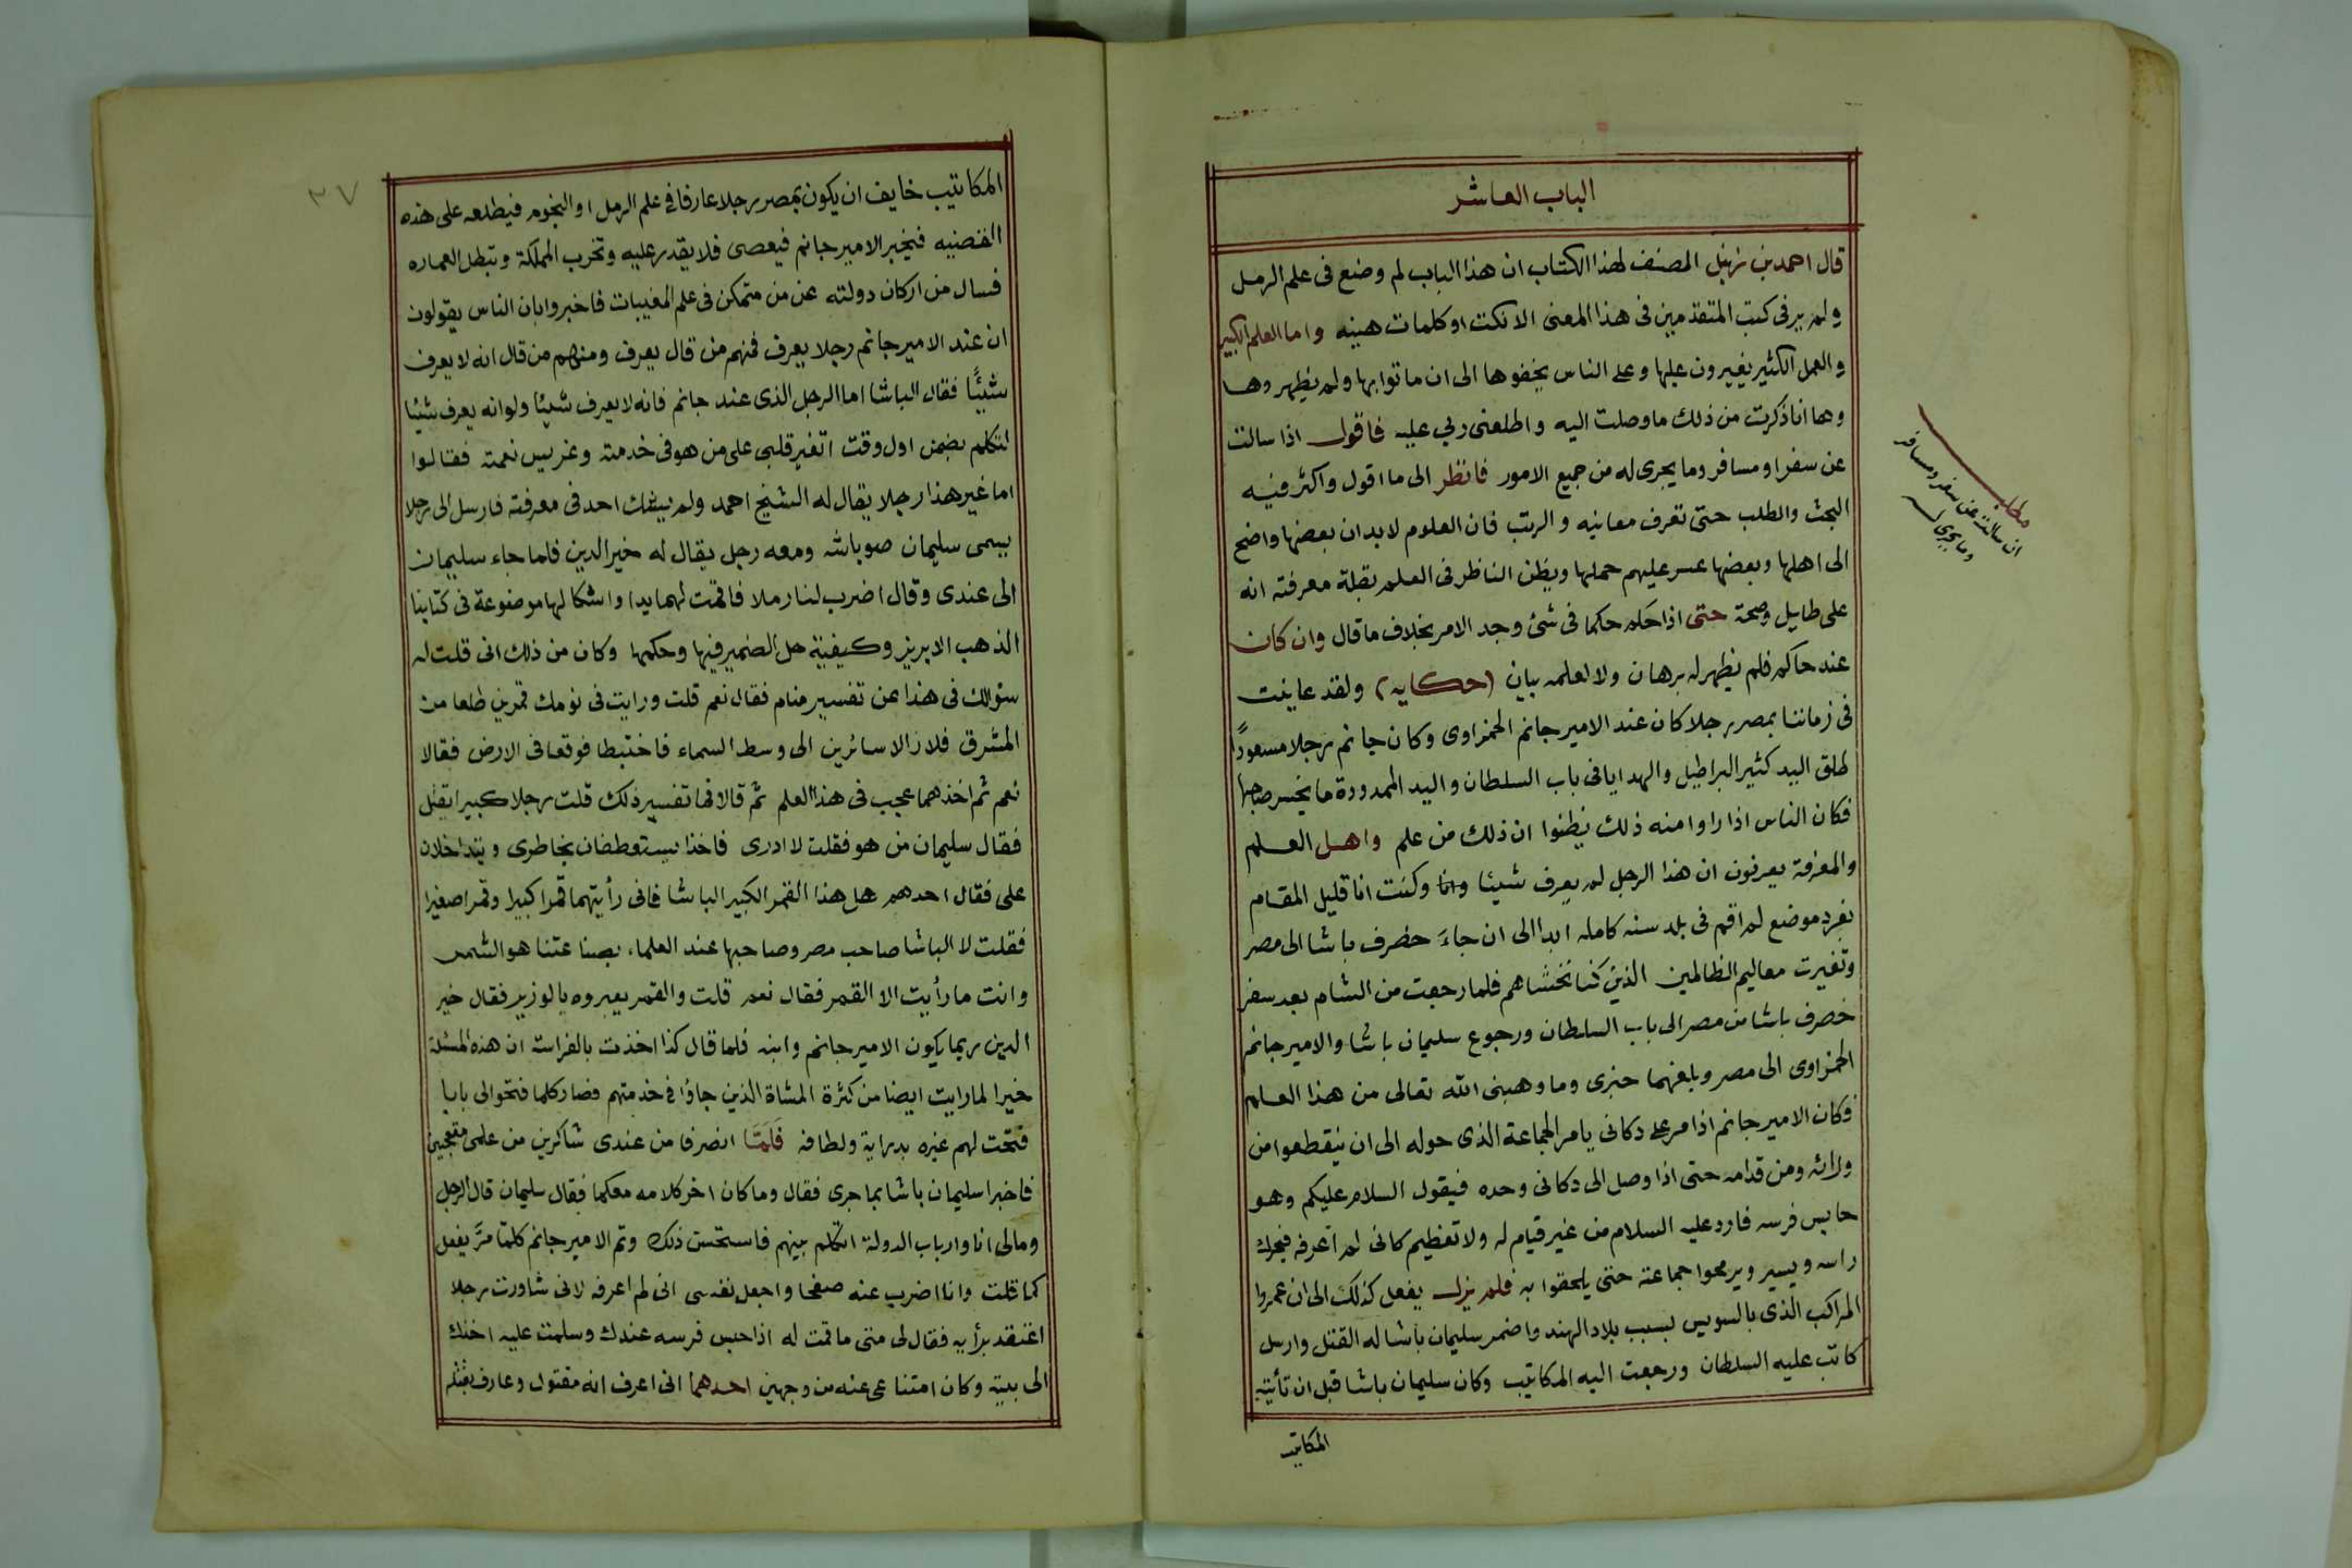 الباب العاشر
قال احمد بن زنبل المصنف لهذا الكتاب ان هذا الباب لم وضع فى علم الرمل
ولم ير فى كتب المتقدمين فى هذا المعنى الا نكت او كلمات هينه واما العلم الكبير
والعمل الكثير يغيرون عليها وعلى الناس يخفوها الى ان ماتوا بها ولم يظهروها
وها انا ذكرت من ذلك ما وصلت اليه واطلعنى ربى عليه فاقول اذا سالت
عن سفر او مسافر وما يجرى له من جميع الامور فانظر الى ما اقول واكثر فيه
البحث والطلب حتى تعرف معانيه والرتب فان العلوم لابد ان بعضها واضح
الى اهلها وبعضها عسر عليهم حملها ويظن الناظر فى العلم بقلة معرفته انه
على طايل وصحة حتى اذا حكم حكما فى شئ وجد الامر بخلاف ما قال وان كان
عند حاكم فلم يظهر له برهان ولا لعلمه بيان (حكايه) ولقد عاينت
فى زماننا بمصر رجلا كان عند الامير جانم الحمزاوى وكان جانم رجلا مسعوداً
طلق اليد كثير البراطيل والهدايا فى باب السلطان واليد الممدودة ما يخسر صاحبها
فكان الناس اذا راوا منه ذلك يظنوا ان ذلك من علم واهل العلم
والمعرفة يعرفون ان هذا الرجل لم يعرف شيئا وانا وكنت انا قليل المقام
بفرد موضع لم اقم فى بلد سنه كامله ابدا الى ان جاءَ خضرف باشا الى مصر
وتغيرت معاليم الظالمين الذين كنا نخشاهم فلما رجعت من الشام بعد سفر
خضرف باشا من مصر الى باب السلطان ورجوع سليمان باشا والامير جانم
الحمزاوى الى مصر وبلغهما خبرى وما وهبنى الله تعالى من هذا العلم
فكان الامير جانم اذا مر على دكانى يامر الجماعة الذى حوله الى ان ينقطعوا من
ورائه ومن قدامه حتى اذا وصل الى دكانى وحده فيقول السلام عليكم وهو
حابس فرسه فارد عليه السلام من غير قيام له ولا تعظيم كانى لم اعرفه فيحرك
راسه ويسير ويرمحوا جماعته حتى يلحقوا به فلم يزل يفعل كذلك الى ان عمروا
المراكب الذى بالسويس بسبب بلاد الهند واضمر سليمان باشا له القتل وارسل
كاتب عليه السلطان ورجعت اليه المكاتيب وكان سليمان باشا قبل ان تأتيه
المكاتيب
مطلب
ان سالت عن سفر ومسافر
وما يجرى له
٣٧
المكاتيب خايف ان يكون بمصر رجلا عارفا فى علم الرمل او النجوم فيطلعه على هذه
القضيه فيخبر الامير جانم فيعصى فلا يقدر عليه وتخرب المملكة وتبطل العماره
فسال من اركان دولته عن من متمكن فى علم المغيبات فاخبروا بان الناس يقولون
ان عند الامير جانم رجلا يعرف فمنهم من قال يعرف ومنهم من قال انه لا يعرف
شيئًا فقال الباشا اما الرجل الذى عند جانم فانه لا يعرف شيئا ولو انه يعرف شيئا
لتكلم بضمن اول وقت اتغير قلبى على من هو فى خدمته وغريس نعمته فقالوا
اما غير هذا رجلا يقال له الشيخ احمد ولم يشك احد فى معرفته فارسل الى رجلا
يسمى سليمان صوباشه ومعه رجل يقال له خير الدين فلما جاء سليمان
الى عندى وقال اضرب لنا رملا فاقمت لهما يدا واشكالها موضوعة فى كتابنا
الذهب الابريز وكيفية حل الضمير فيها وحكمها وكان من ذلك انى قلت له
سؤالك فى هذا عن تفسير منام فقال نعم قلت ورايت فى نومك قمرين طلعا من
المشرق فلا زالا سائرين الى وسط السماء فاختبطا فوقعا فى الارض فقالا
نعم ثم اخذهما عجب فى هذا العلم ثم قالا فما تفسير ذلك قلت رجلا كبيرا يقتل
فقال سليمان من هو فقلت لا ادرى فاخذا يستعطفان بخاطرى ويتداخلان
على فقال احدهم هل هذا القمر الكبير الباشا فانى رأيتهما قمرا كبيرا وقمرا صغيرا
فقلت لا الباشا صاحب مصر وصاحبها عند العلماء بصناعتنا هو الشمس
وانت ما رأيت الا القمر فقال نعم قلت والقمر يعبروه بالوزير فقال خير
الدين ربما يكون الامير جانم وابنه فلما قال كذا اخذت بالفراسة ان هذه المسئلة
خيرا لما رايت ايضا من كثرة المشاة الذين جاؤا فى خدمتهم فصار كلما فتحوا لى بابا
فتحت لهم غيره بدراية ولطافه فلَمَّا انصرفا من عندى شاكرين من علمى متعجبين
فاخبرا سليمان باشا بما جرى فقال وما كان اخر كلامه معكما فقال سليمان قال الرجل
ومالى انا وارباب الدولة اتكلم بينهم فاستحسن ذلك وتم الامير جانم كلما مرّ يفعل
كما قلت وانا اضرب عنه صفحا واجعل نفسى انى لم اعرفه لانى شاورت رجلا
اعتقد برأيه فقال لى متى ما قمت له اذا حبس فرسه عندك وسلمت عليه اخذك
الى بيته وكان امتناعى عنه من وجهين احدهما انى اعرف انه مقتول وعارف بقتله